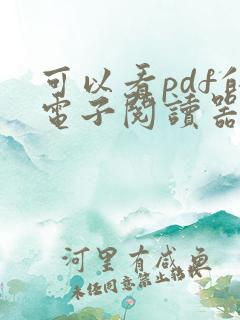 可以看pdf的
電子閱讀器
河里有咸鱼
未经同意禁止转载